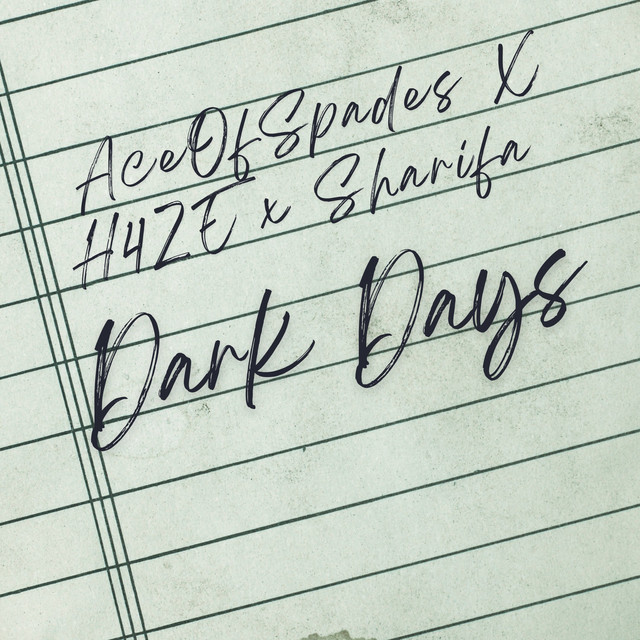 AceOfSpades X
H4ZE x Sharifa
Dark Days